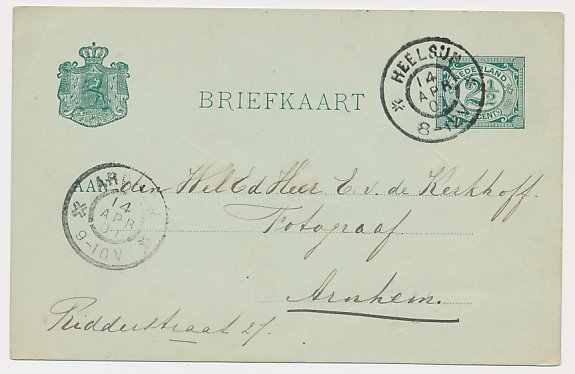 BRIEFKAART
HEELSUM
14
APR
8-12V
NEDERLAND
2½
CENT
AAN den WelEd Heer E. v. de Kerkhoff.
Fotograaf
Arnhem.
Ridderstraat
14
APR
01
6-10N